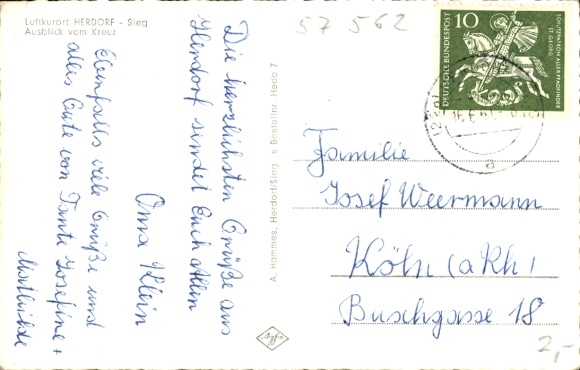 Luftkurort HERDORF - Sieg
Ausblick vom Kreuz
57 562
Die herzlichsten Grüße aus
Herdorf sendet Euch Allen
Oma Klein
Ebenfalls viele Grüße und
alles Gute von Tante Josefine +
Mathilde
A. Hammes, Herdorf/Sieg
s Bestellnr. Hedo 7
10
DEUTSCHE BUNDESPOST
SCHUTZPATRON ALLER PFADFINDER
ST. GEORG
Familie
Josef Weermann
Köln (a Rh)
Buschgasse 18
2,-